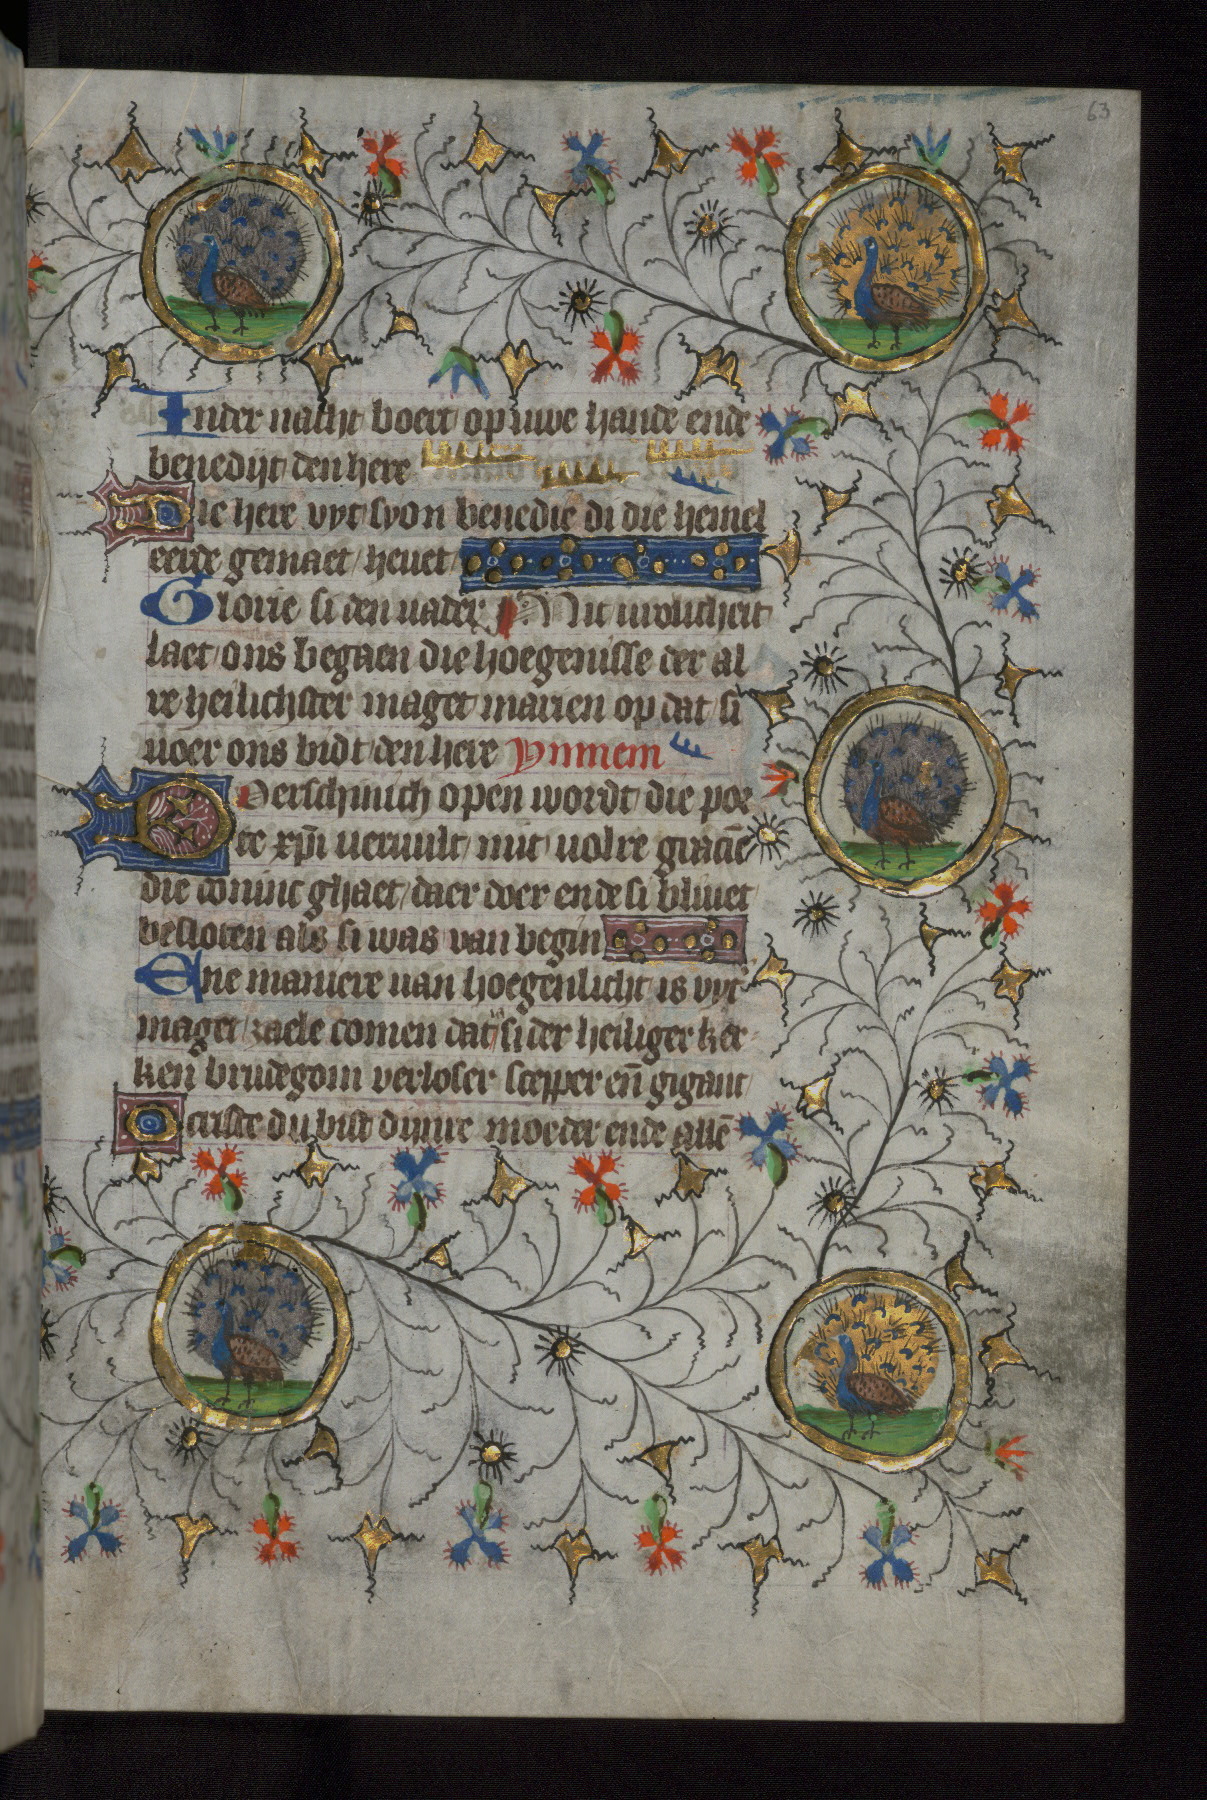 63
Inder nacht boert op uwe hande ende
benedijt den here
Die here uyt syon benedie di die hemel
eerde gemaect hevet
Glorie si den vader Mit vrolicheit
laet ons begaen die hoegenisse der al
re heilichster maget marien op dat si
voer ons bidt den here Ymnem
Overschinich open wordt die poer
te xpi vervult mit volre gracie
die coninc ghaet daer doer ende si blivet
besloten als si was van begin
Ene maniere van hoegenlicht is uyt
maget zaele comen dat is der heiliger ker
ken brudegom verloser scepper en̄ gigant
criste du bist dijnre moeder ende allē